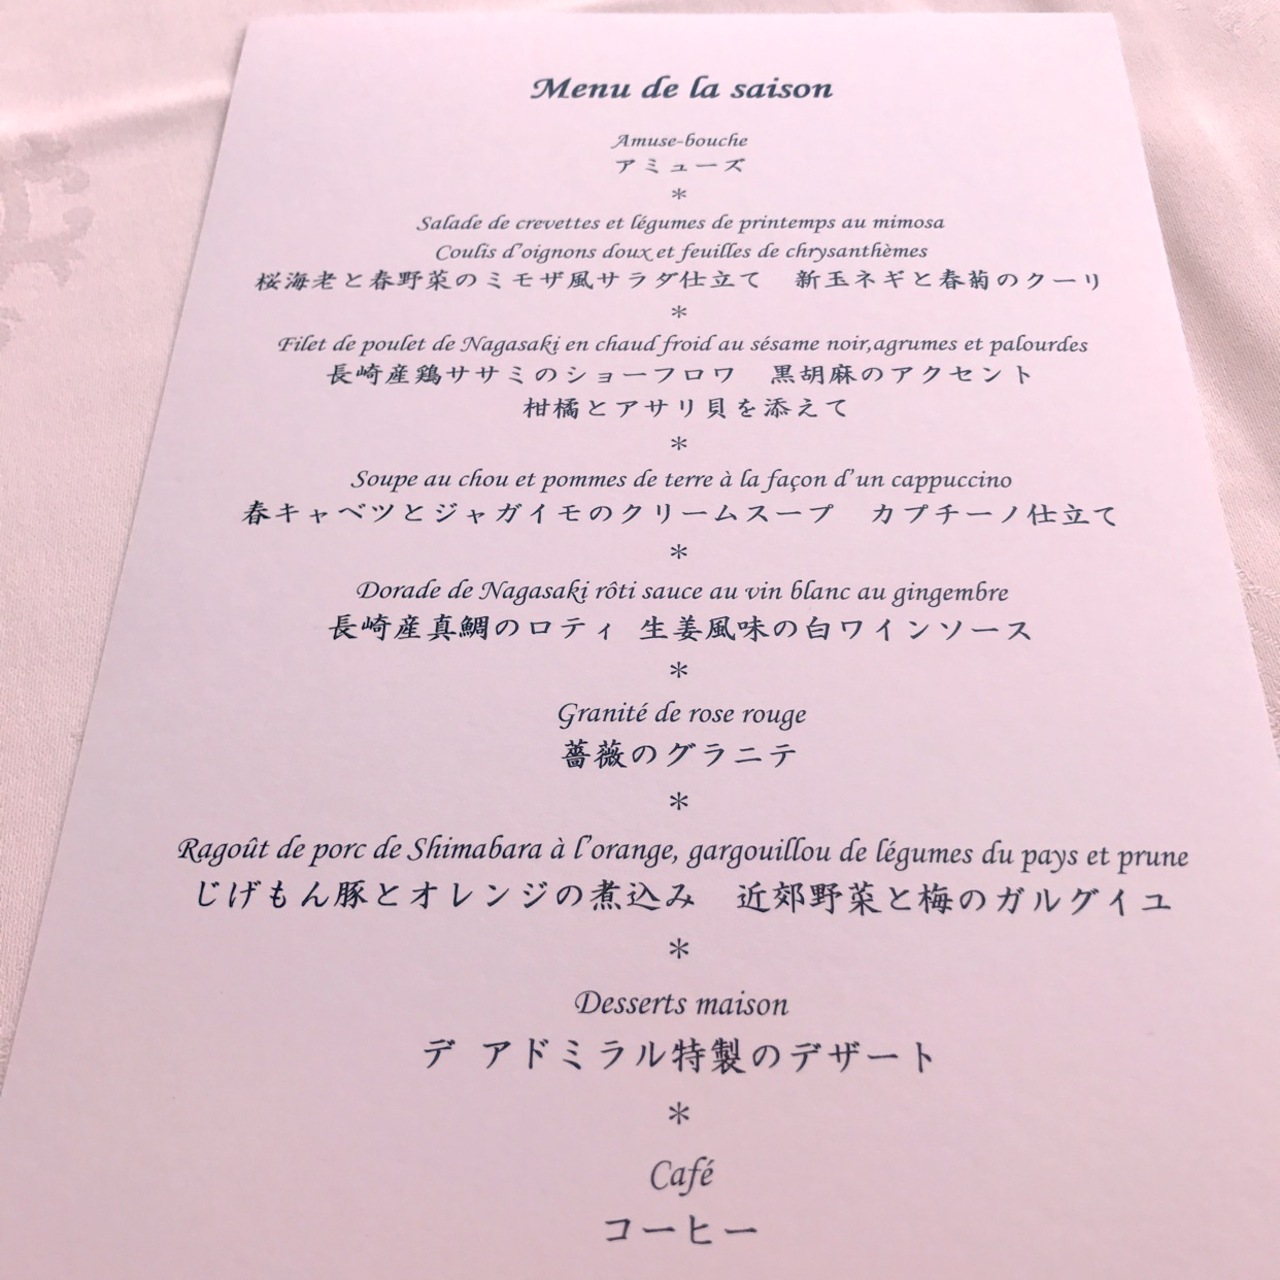 Menu de la saison
Amuse-bouche
アミューズ
*
Salade de crevettes et légumes de printemps au mimosa
Coulis d'oignons doux et feuilles de chrysanthèmes
桜海老と春野菜のミモザ風サラダ仕立て　新玉ネギと春菊のクーリ
*
Filet de poulet de Nagasaki en chaud froid au sésame noir,agrumes et palourdes
長崎産鶏ササミのショーフロワ　黒胡麻のアクセント
柑橘とアサリ貝を添えて
*
Soupe au chou et pommes de terre à la façon d'un cappuccino
春キャベツとジャガイモのクリームスープ　カプチーノ仕立て
*
Dorade de Nagasaki rôti sauce au vin blanc au gingembre
長崎産真鯛のロティ 生姜風味の白ワインソース
*
Granité de rose rouge
薔薇のグラニテ
*
Ragoût de porc de Shimabara à l'orange, gargouillou de légumes du pays et prune
じげもん豚とオレンジの煮込み　近郊野菜と梅のガルグイユ
*
Desserts maison
デ アドミラル特製のデザート
*
Café
コーヒー